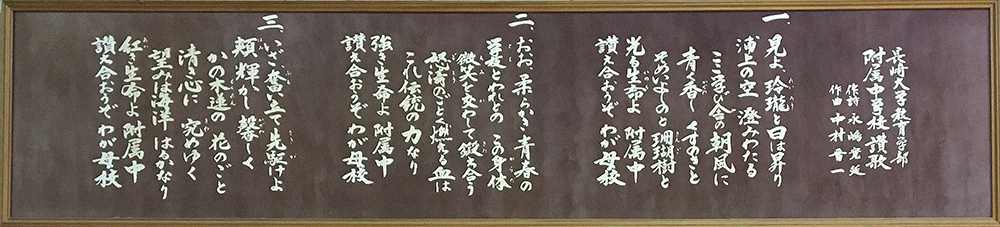 長崎大学教育学部
附属中学校讃歌
作詩 永嶋寛延
作曲 中村晋一
一、見よ 玲瓏と日は昇り
浦上の空 澄みわたる
この学び舎の朝風に
青く香し くすのきと
そのいのちの 珊瑚樹と
光る生命よ 附属中
讃え合おうぞ わが母校
二、おお 柔らかき青春の
若夏とわれとの この身体
微笑を交わして 鍛ち合う
怒濤のごと 燃える血は
これ伝統の 力なり
強き生命よ 附属中
讃え合おうぞ わが母校
三、いざ奮い立て 先駆けよ
頬輝かし 馨しく
かの木蓮の 花のごと
清き心に 究めゆく
望みは海洋 はるかなり
紅き生命よ 附属中
讃え合おうぞ わが母校